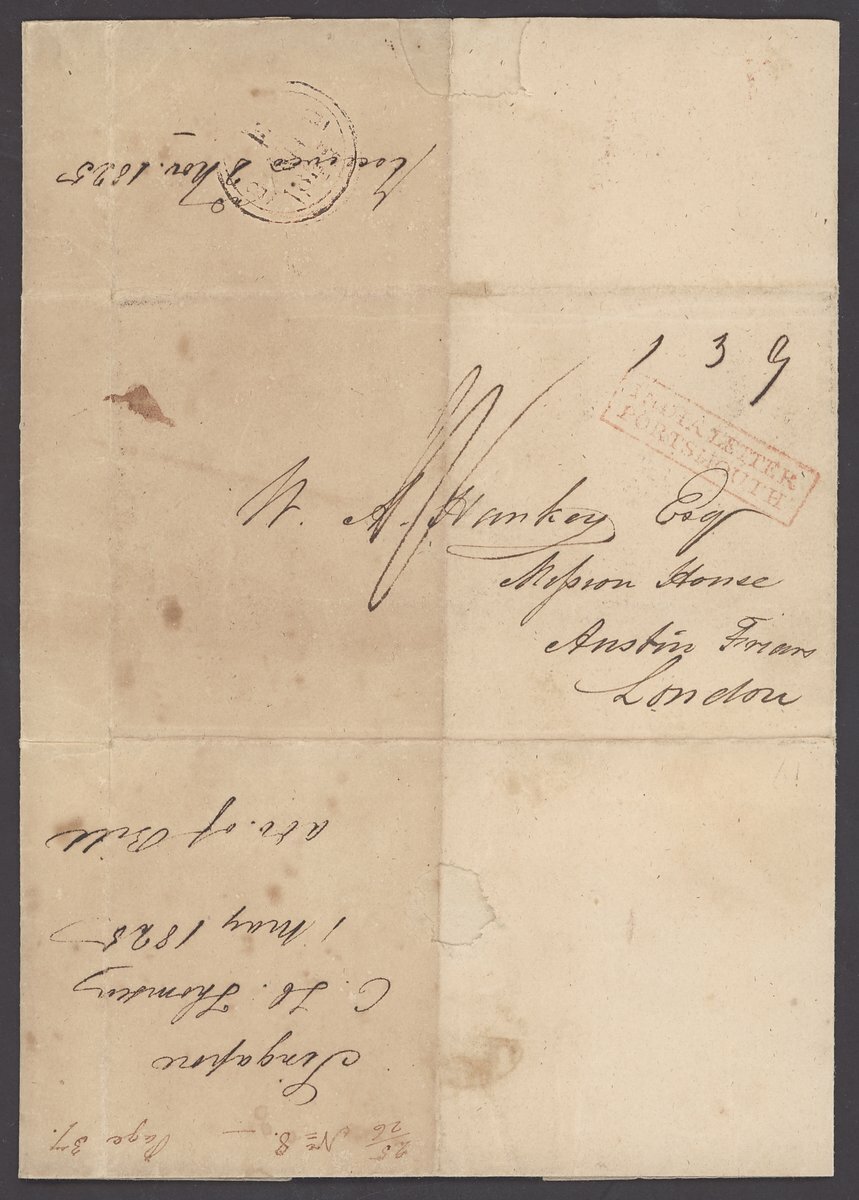 Received 2 Nov. 1825
1 3 9
INDIA LETTER
PORTSMOUTH
W. A. Hankey Esqr
Mission House
Austin Friars
London
25/26 No 8. — Page 37.
Singapore
C. H. Thomsen
1 May 1825
adv. of Bill